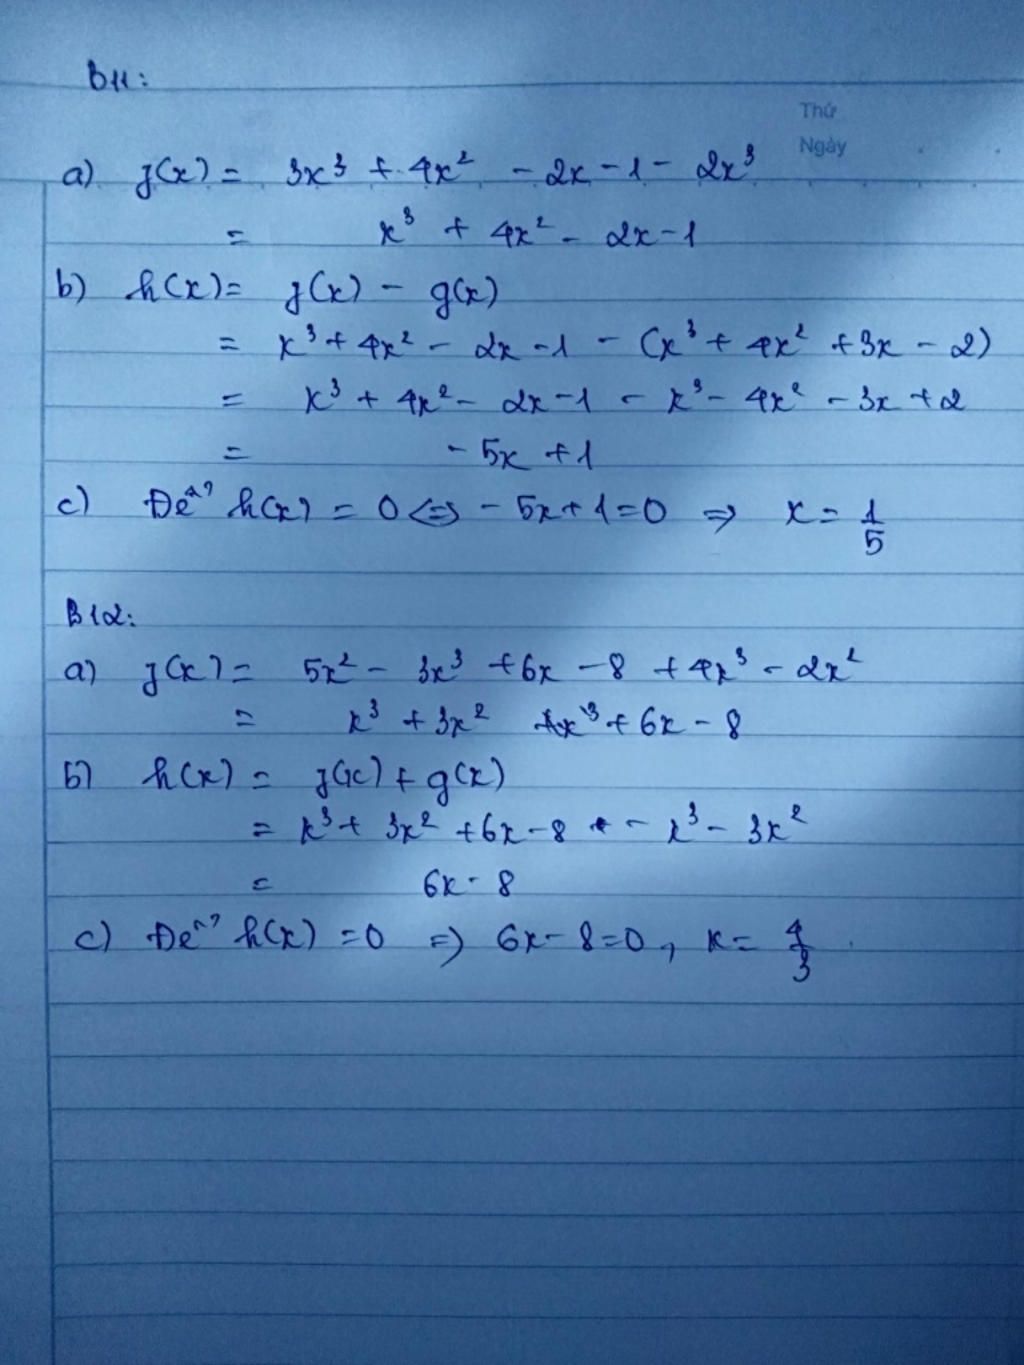 B11:
Thứ
Ngày
a) f(x) = 3x³ + 4x² - 2x - 1 - 2x³
= x³ + 4x² - 2x - 1
b) h(x) = f(x) - g(x)
= x³ + 4x² - 2x - 1 - (x³ + 4x² + 3x - 2)
= x³ + 4x² - 2x - 1 - x³ - 4x² - 3x + 2
= - 5x + 1
c) Để h(x) = 0 <=> - 5x + 1 = 0 => x = 1/5
B12:
a) f(x) = 5x² - 3x³ + 6x - 8 + 4x³ - 2x²
= x³ + 3x² + 6x - 8
b) h(x) = f(x) + g(x)
= x³ + 3x² + 6x - 8 - x³ - 3x²
= 6x - 8
c) Để h(x) = 0 => 6x - 8 = 0, x = 4/3